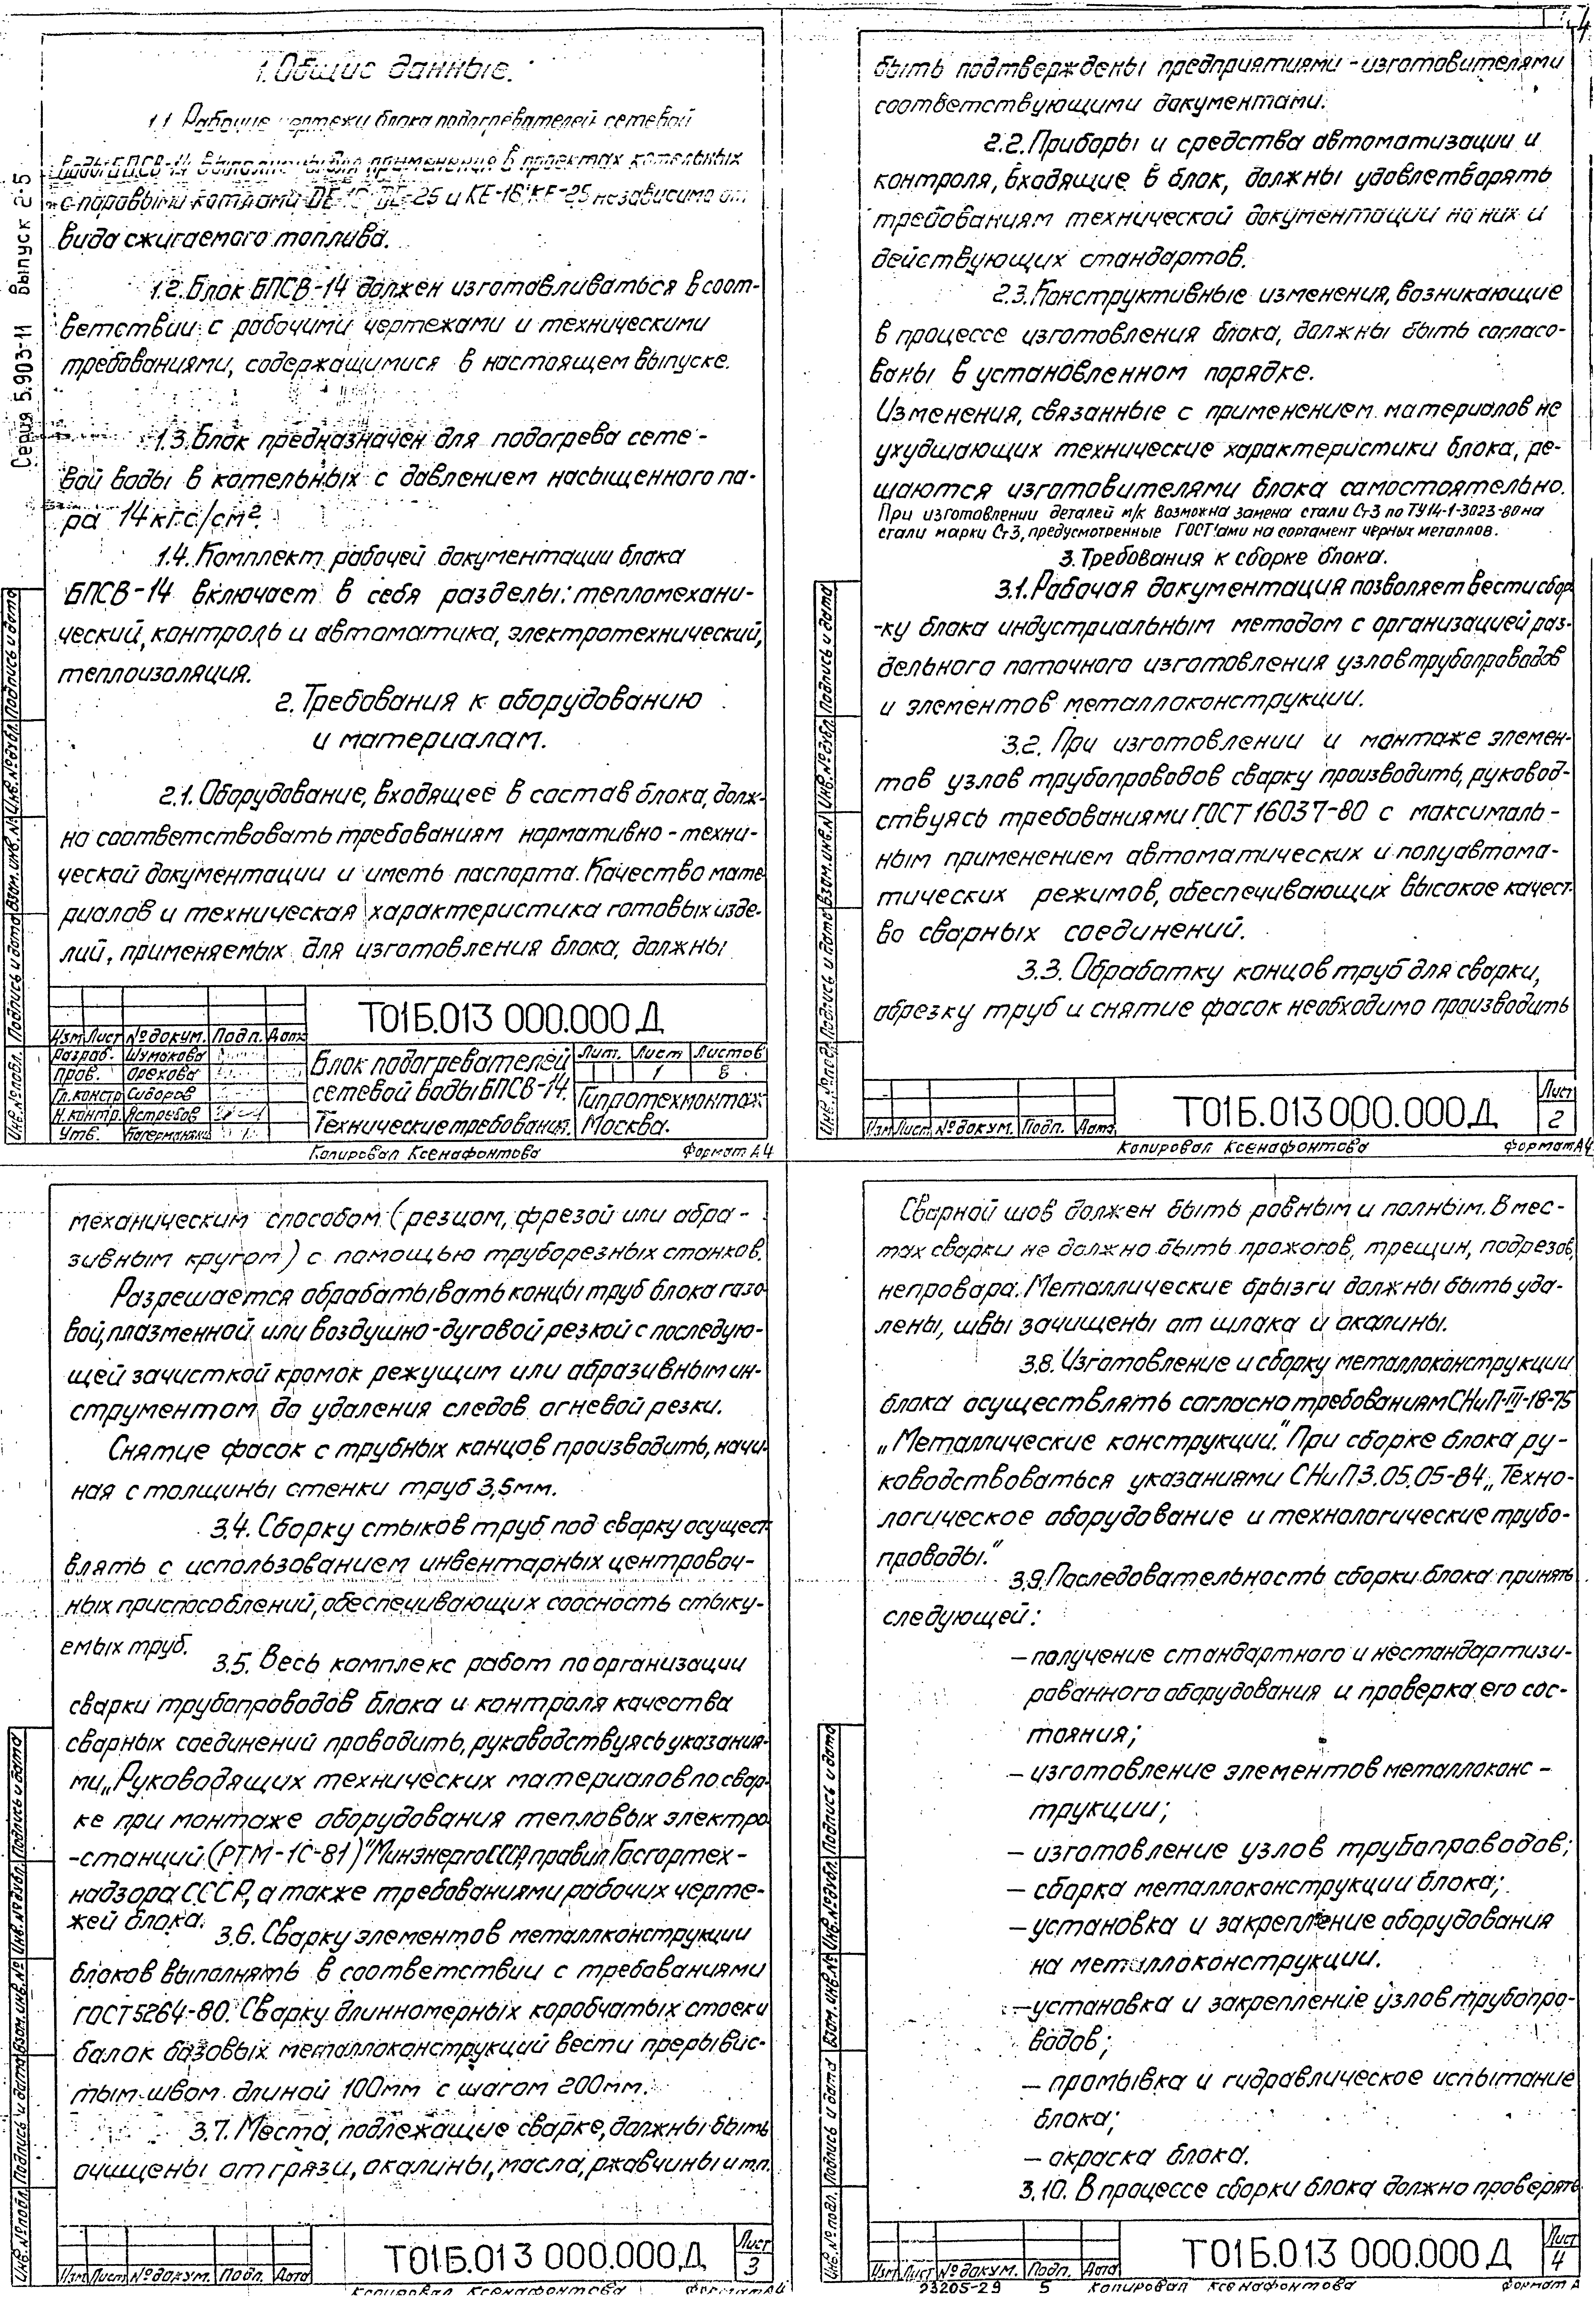 4
Серия 5.903-11 Выпуск 2-5
1. Общие данные.
1.1. Рабочие чертежи блока подогревателей сетевой
воды БПСВ-14 выполнены для применения в проектах котельных
с паровыми котлами ДЕ-16, ДЕ-25 и КЕ-16, КЕ-25 независимо от
вида сжигаемого топлива.
1.2. Блок БПСВ-14 должен изготавливаться в соот-
ветствии с рабочими чертежами и техническими
требованиями, содержащимися в настоящем выпуске.
1.3. Блок предназначен для подогрева сете-
вой воды в котельных с давлением насыщенного па-
ра 14 кгс/см².
1.4. Комплект рабочей документации блока
БПСВ-14 включает в себя разделы: тепломехани-
ческий, контроль и автоматика, электротехнический,
теплоизоляция.
2. Требования к оборудованию
и материалам.
2.1. Оборудование, входящее в состав блока, долж-
но соответствовать требованиям нормативно-техни-
ческой документации и иметь паспорта. Качество мате
риалов и техническая характеристика готовых изде-
лий, применяемых для изготовления блока, должны
Т01Б.013 000.000 Д
Изм Лист № докум. Подп. Дата
Разраб. Шумакова
Пров. Орехова
Гл.констр Сидоров
Н.контр. Ястребов
Утв.
Блок подогревателей
сетевой воды БПСВ-14.
Технические требования.
Лит. Лист Листов
1 8
Гипротехмонтаж
Москва.
Копировал Ксенафонтова Формат А4
Инв.№подл. Подпись и дата Взам.инв.№ Инв.№дубл. Подпись и дата
быть подтверждены предприятиями-изготовителями
соответствующими документами.
2.2. Приборы и средства автоматизации и
контроля, входящие в блок, должны удовлетворять
требованиям технической документации на них и
действующих стандартов.
2.3. Конструктивные изменения, возникающие
в процессе изготовления блока, должны быть согласо-
ваны в установленном порядке.
Изменения, связанные с применением материалов не
ухудшающих технические характеристики блока, ре-
шаются изготовителями блока самостоятельно.
При изготовлении деталей м/к возможна замена стали Ст3 по ТУ14-1-3023-80 на
стали марки Ст3, предусмотренные ГОСТ'ами на сортамент черных металлов.
3. Требования к сборке блока.
3.1. Рабочая документация позволяет вести сбор
-ку блока индустриальным методом с организацией раз-
дельного поточного изготовления узлов трубопроводов
и элементов металлоконструкции.
3.2. При изготовлении и монтаже элемен-
тов узлов трубопроводов сварку производить, руковод-
ствуясь требованиями ГОСТ 16037-80 с максималь-
ным применением автоматических и полуавтома-
тических режимов, обеспечивающих высокое качест-
во сварных соединений.
3.3. Обработку концов труб для сварки,
обрезку труб и снятие фасок необходимо производить
Изм Лист № докум. Подп. Дата
Т01Б.013 000.000 Д
Лист
2
Копировал Ксенафонтова Формат А4
Инв.№подл. Подпись и дата Взам.инв.№ Инв.№дубл. Подпись и дата
механическим способом (резцом, фрезой или абра-
зивным кругом) с помощью труборезных станков.
Разрешается обрабатывать концы труб блока газо
вой, плазменной, или воздушно-дуговой резкой с последую-
щей зачисткой кромок режущим или абразивным ин-
струментом до удаления следов огневой резки.
Снятие фасок с трубных концов производить, начи-
ная с толщины стенки труб 3,5мм.
3.4. Сборку стыков труб под сварку осущест
влять с использованием инвентарных центровоч-
ных приспособлений, обеспечивающих соосность стыку-
емых труб.
3.5. Весь комплекс работ по организации
сварки трубопроводов блока и контроля качества
сварных соединений проводить, руководствуясь указания-
ми „Руководящих технических материалов по свар-
ке при монтаже оборудования тепловых электро
-станций (РТМ-1С-81)" Минэнерго СССР, правил Госгортех-
надзора СССР, а также требованиями рабочих черте-
жей блока.
3.6. Сварку элементов металлконструкции
блоков выполнять в соответствии с требованиями
ГОСТ 5264-80. Сварку длинномерных коробчатых стоек и
балок базовых металлоконструкций вести прерывис-
тым швом длиной 100мм с шагом 200мм.
3.7. Места, подлежащие сварке, должны быть
очищены от грязи, окалины, масла, ржавчины и т.п.
Изм Лист № докум. Подп. Дата
Т01Б.013 000.000 Д
Лист
3
Копировал Ксенафонтова Формат А4
Инв.№подл. Подпись и дата Взам.инв.№ Инв.№дубл. Подпись и дата
Сварной шов должен быть ровным и полным. В мес-
тах сварки не должно быть прожогов, трещин, подрезов,
непровара. Металлические брызги должны быть уда-
лены, швы зачищены от шлака и окалины.
3.8. Изготовление и сборку металлоконструкции
блока осуществлять согласно требованиям СНиП-III-18-75
„Металлические конструкции." При сборке блока ру-
ководствоваться указаниями СНиП 3.05.05-84 „Техно-
логическое оборудование и технологические трубо-
проводы."
3.9. Последовательность сборки блока принять
следующей:
– получение стандартного и нестандартизи-
рованного оборудования и проверка его сос-
тояния;
– изготовление элементов металлоконс-
трукции;
– изготовление узлов трубопроводов;
– сборка металлоконструкции блока;
– установка и закрепление оборудования
на металлоконструкции.
– установка и закрепление узлов трубопро-
водов;
– промывка и гидравлическое испытание
блока;
– окраска блока.
3.10. В процессе сборки блока должно проверять
Изм Лист № докум. Подп. Дата
Т01Б.013 000.000 Д
Лист
4
23205-29 5 Копировал Ксенафонтова Формат А
Инв.№подл. Подпись и дата Взам.инв.№ Инв.№дубл. Подпись и дата